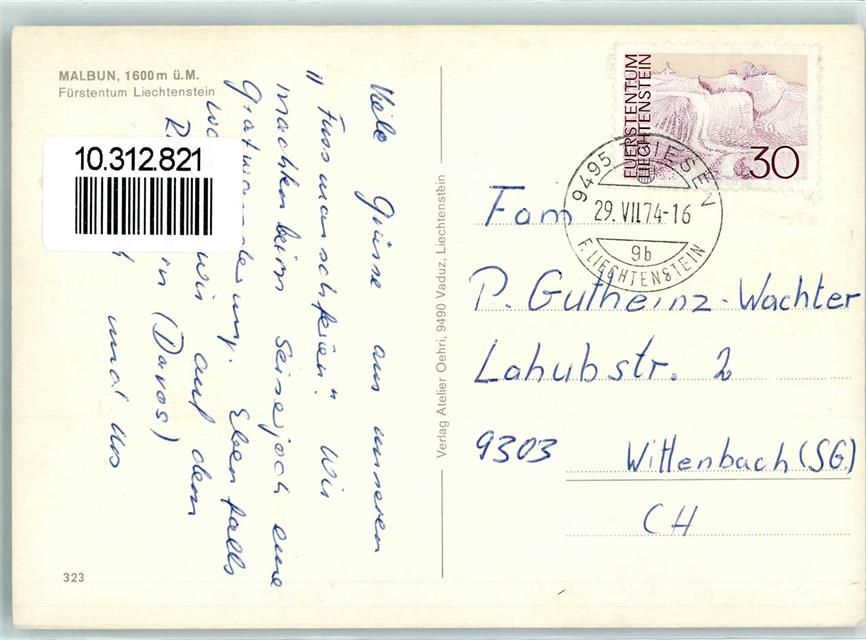 MALBUN, 1600 m ü.M.
Fürstentum Liechtenstein
10.312.821
Viele Grüsse aus unseren
"Fussmarschferien". Wir
machten beim
eine
Gratwanderung. Ebenfalls
wir auf dem
(Davos)
mal
323
Verlag Atelier Oehri, 9490 Vaduz, Liechtenstein
FUERSTENTUM
LIECHTENSTEIN
30
9495 TRIESEN
29.VII.74-16
9b
F. LIECHTENSTEIN
Fam
P. Gutheinz-Wachter
Lahubstr. 2
9303 Wittenbach (SG)
CH